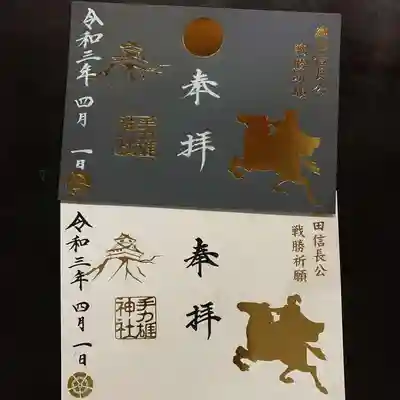 織田信長公
戦勝祈願
奉拝
手力雄
神社
令和三年 四月 一日
田信長公
戦勝祈願
奉拝
手力雄
神社
令和三年 四月 一日